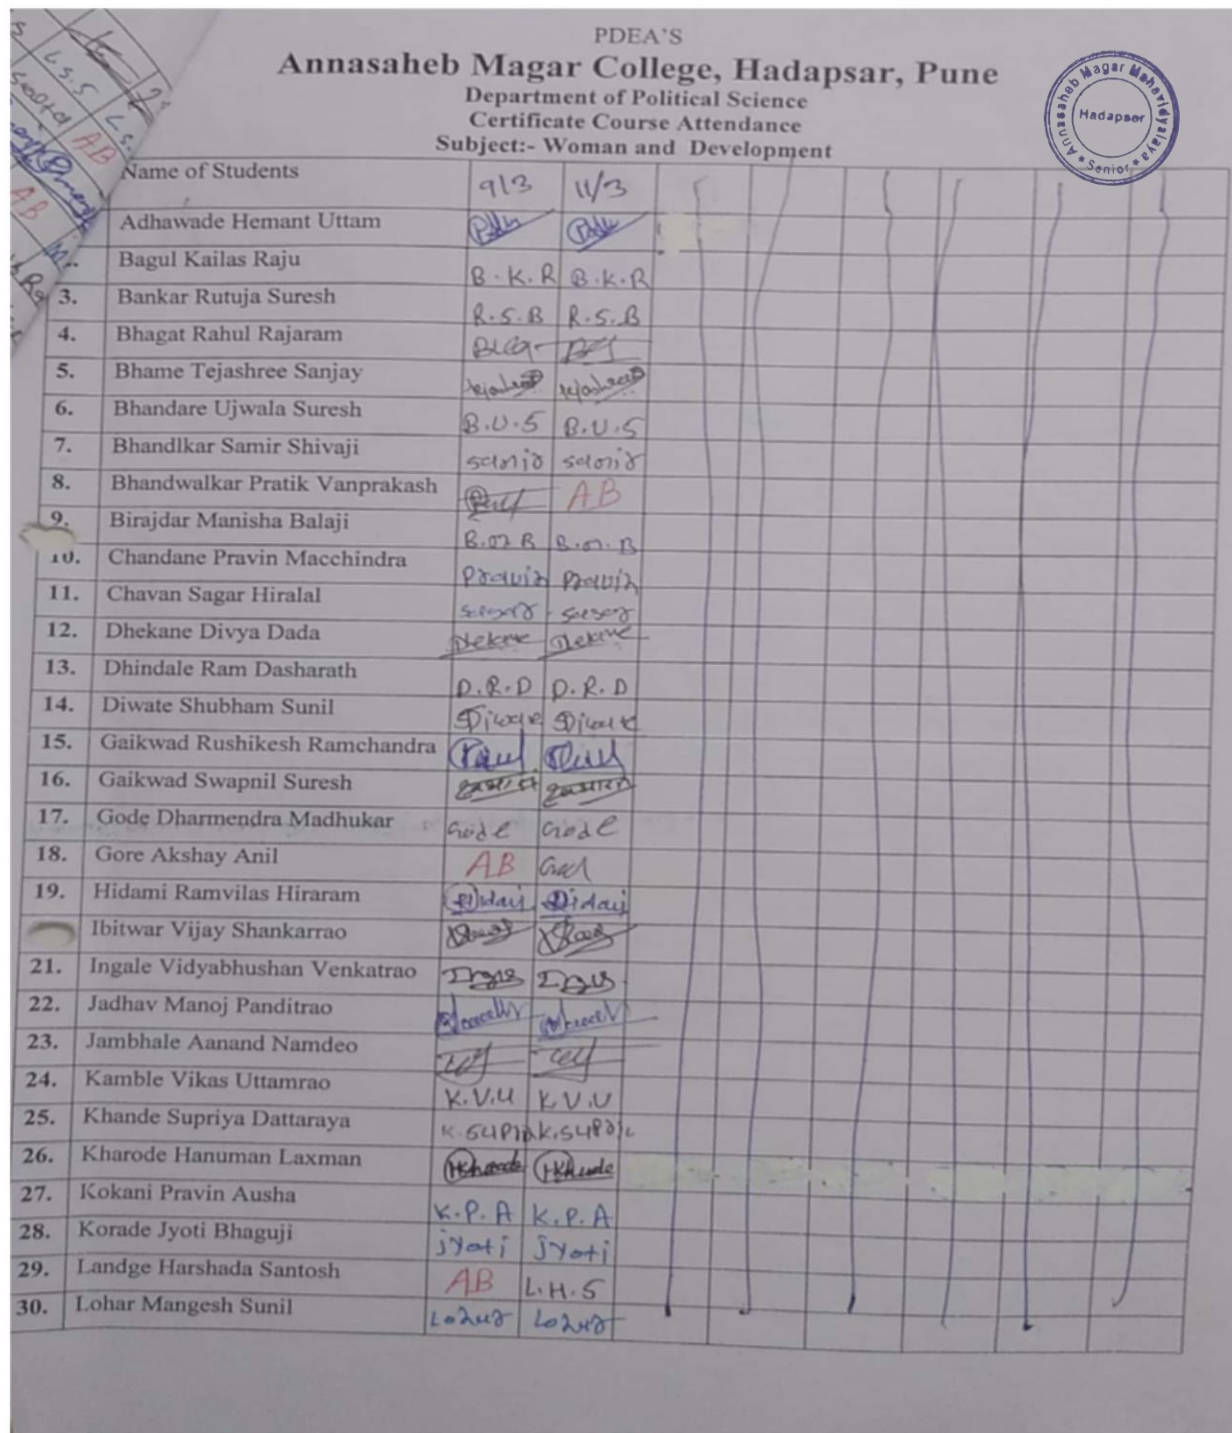 PDEA'S
Annasaheb Magar College, Hadapsar, Pune
Department of Political Science
Certificate Course Attendance
Subject:- Woman and Development
Annasaheb Magar Mahavidyalaya
Hadapsar
* Senior *
L.S.S
AB
AB
Name of Students 9/3 11/3
Adhawade Hemant Uttam
Bagul Kailas Raju B.K.R B.K.R
3. Bankar Rutuja Suresh R.S.B R.S.B
4. Bhagat Rahul Rajaram
5. Bhame Tejashree Sanjay Tejashree Tejashree
6. Bhandare Ujwala Suresh B.U.S B.U.S
7. Bhandlkar Samir Shivaji
8. Bhandwalkar Pratik Vanprakash AB
9. Birajdar Manisha Balaji B.M.B B.M.B
10. Chandane Pravin Macchindra Pravin Pravin
11. Chavan Sagar Hiralal
12. Dhekane Divya Dada
13. Dhindale Ram Dasharath D.R.D D.R.D
14. Diwate Shubham Sunil
15. Gaikwad Rushikesh Ramchandra
16. Gaikwad Swapnil Suresh
17. Gode Dharmendra Madhukar Gode Gode
18. Gore Akshay Anil AB
19. Hidami Ramvilas Hiraram
Ibitwar Vijay Shankarrao
21. Ingale Vidyabhushan Venkatrao
22. Jadhav Manoj Panditrao
23. Jambhale Aanand Namdeo
24. Kamble Vikas Uttamrao K.V.U K.V.U
25. Khande Supriya Dattaraya
26. Kharode Hanuman Laxman
27. Kokani Pravin Ausha K.P.A K.P.A
28. Korade Jyoti Bhaguji jyoti jyoti
29. Landge Harshada Santosh AB L.H.S
30. Lohar Mangesh Sunil Lohar Lohar